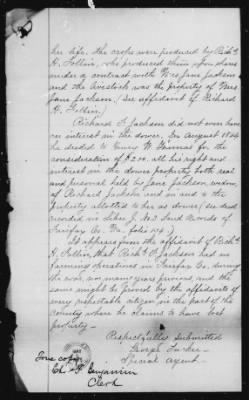 her life, the crops were produced by Richd
H. Follin, who produced them on shares
under a contract with Mrs Jane Jackson
and the livestock was the property of Mrs
Jane Jackson. (See affidavit of Richard
H. Follin.)
Richard F. Jackson did not own
an interest in the dower. In August 1854
he deeded to Henry W. Thomas for the
consideration of $200. all his right and
interest in the dower property both real
and personal held by Jane Jackson, widow
of Richard Jackson and in and to the
property allotted to her as dower (see deed
recorded in Liber J. No 3 Land Records of
Fairfax Co. Va. folio
It appears from the affidavit of Richd
H. Follin, that Richd F. Jackson had no
farming operations in Fairfax Co. during
the war, nor many years previous, and the
same might be proved by the affidavits of
every respectable citizen in the part of the
country where he claims to have lost
property—
Respectfully submitted
George Tucker
Special Agent.
True copy
Ch. F. Benjamin
Clerk